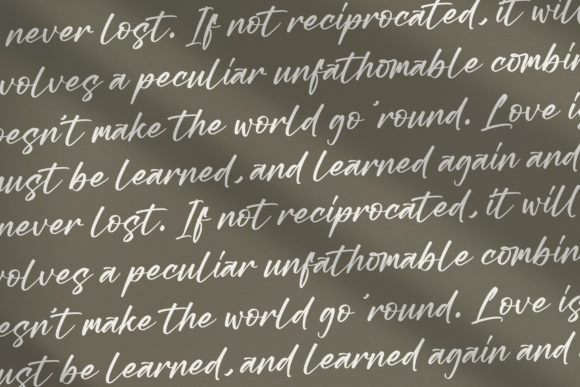 never lost. If not reciprocated, it will
volves a peculiar unfathomable combin
oesn't make the world go 'round. Love is
must be learned, and learned again and
never lost. If not reciprocated, it will
volves a peculiar unfathomable combin
esn't make the world go 'round. Love is
ust be learned, and learned again and